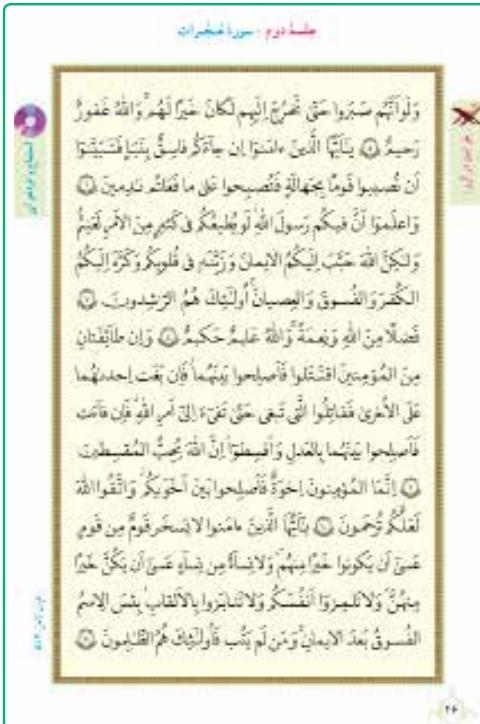 جلسهٔ دوم - سورهٔ حُجُرات
وَلَوأَنَّهُم صَبَروا حَتّىٰ تَخرُجَ إِلَيهِم لَكانَ خَيرًا لَهُم ۚ وَاللَّهُ غَفورٌ
رَحيمٌ ۝٥ يٰأَيُّهَا الَّذينَ ءامَنوا إِن جاءَكُم فاسِقٌ بِنَبَإٍ فَتَبَيَّنوا
أَن تُصيبوا قَومًا بِجَهالَةٍ فَتُصبِحوا عَلىٰ ما فَعَلتُم نادِمينَ ۝٦
وَاعلَموا أَنَّ فيكُم رَسولَ اللَّهِ ۚ لَو يُطيعُكُم فى كَثيرٍ مِنَ الأَمرِ لَعَنِتُّم
وَلٰكِنَّ اللَّهَ حَبَّبَ إِلَيكُمُ الايمانَ وَزَيَّنَهُ فى قُلوبِكُم وَكَرَّهَ إِلَيكُمُ
الكُفرَ وَالفُسوقَ وَالعِصيانَ ۚ أُولٰئِكَ هُمُ الرّٰشِدونَ ۝٧
فَضلًا مِنَ اللَّهِ وَنِعمَةً ۚ وَاللَّهُ عَليمٌ حَكيمٌ ۝٨ وَإِن طائِفَتانِ
مِنَ المُؤمِنينَ اقتَتَلوا فَأَصلِحوا بَينَهُما ۖ فَإِن بَغَت إِحدىٰهُما
عَلَى الأُخرىٰ فَقاتِلُوا الَّتى تَبغى حَتّىٰ تَفىءَ إِلىٰ أَمرِ اللَّهِ ۚ فَإِن فاءَت
فَأَصلِحوا بَينَهُما بِالعَدلِ وَأَقسِطوا ۖ إِنَّ اللَّهَ يُحِبُّ المُقسِطينَ
۝٩ إِنَّمَا المُؤمِنونَ إِخوَةٌ فَأَصلِحوا بَينَ أَخَوَيكُم ۚ وَاتَّقُوا اللَّهَ
لَعَلَّكُم تُرحَمونَ ۝١٠ يٰأَيُّهَا الَّذينَ ءامَنوا لا يَسخَر قَومٌ مِن قَومٍ
عَسىٰ أَن يَكونوا خَيرًا مِنهُم وَلا نِساءٌ مِن نِساءٍ عَسىٰ أَن يَكُنَّ خَيرًا
مِنهُنَّ ۖ وَلا تَلمِزوا أَنفُسَكُم وَلا تَنابَزوا بِالأَلقابِ ۖ بِئسَ الاِسمُ
الفُسوقُ بَعدَ الايمانِ ۚ وَمَن لَم يَتُب فَأُولٰئِكَ هُمُ الظّالِمونَ ۝١١
٢٦